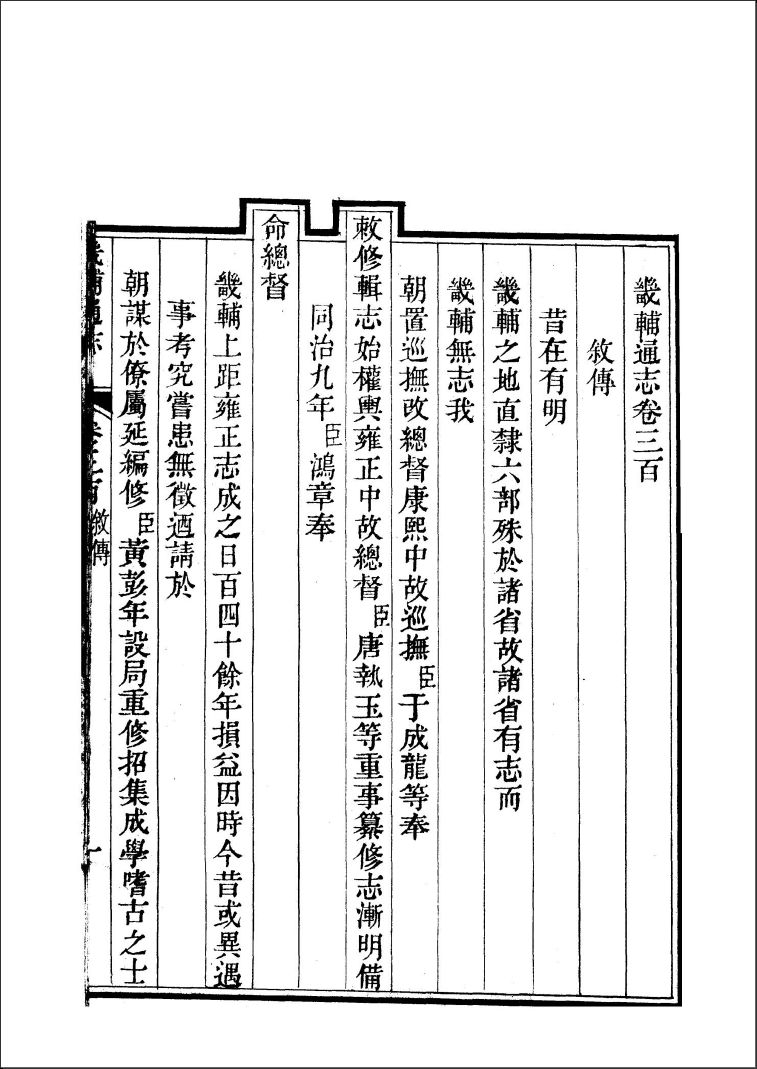 畿輔通志卷三百
敘傳
昔在有明
畿輔之地直隸六部殊於諸省故諸省有志而
畿輔無志我
朝置巡撫改總督康熙中故巡撫臣于成龍等奉
敕修輯志始權輿雍正中故總督臣唐執玉等重事纂修志漸明備
同治九年臣鴻章奉
命總督
畿輔上距雍正志成之日百四十餘年損益因時今昔或異遇
事考究嘗患無徵迺請於
朝謀於僚屬延編修臣黃彭年設局重修招集成學嗜古之士
畿輔通志 卷三百敘傳 一